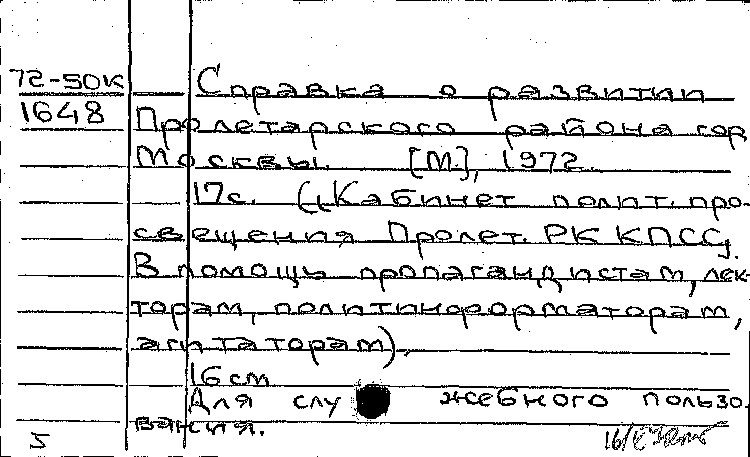 72-50к Справка о развитии
1648 Пролетарского района гор
Москвы. [М.], 1972.
17с. (Кабинет полит. про-
свещения Пролет. РК КПСС).
В помощь пропагандистам, лек-
торам, политинформаторам,
агитаторам).
16 см
Для служебного пользо-
вания.
5